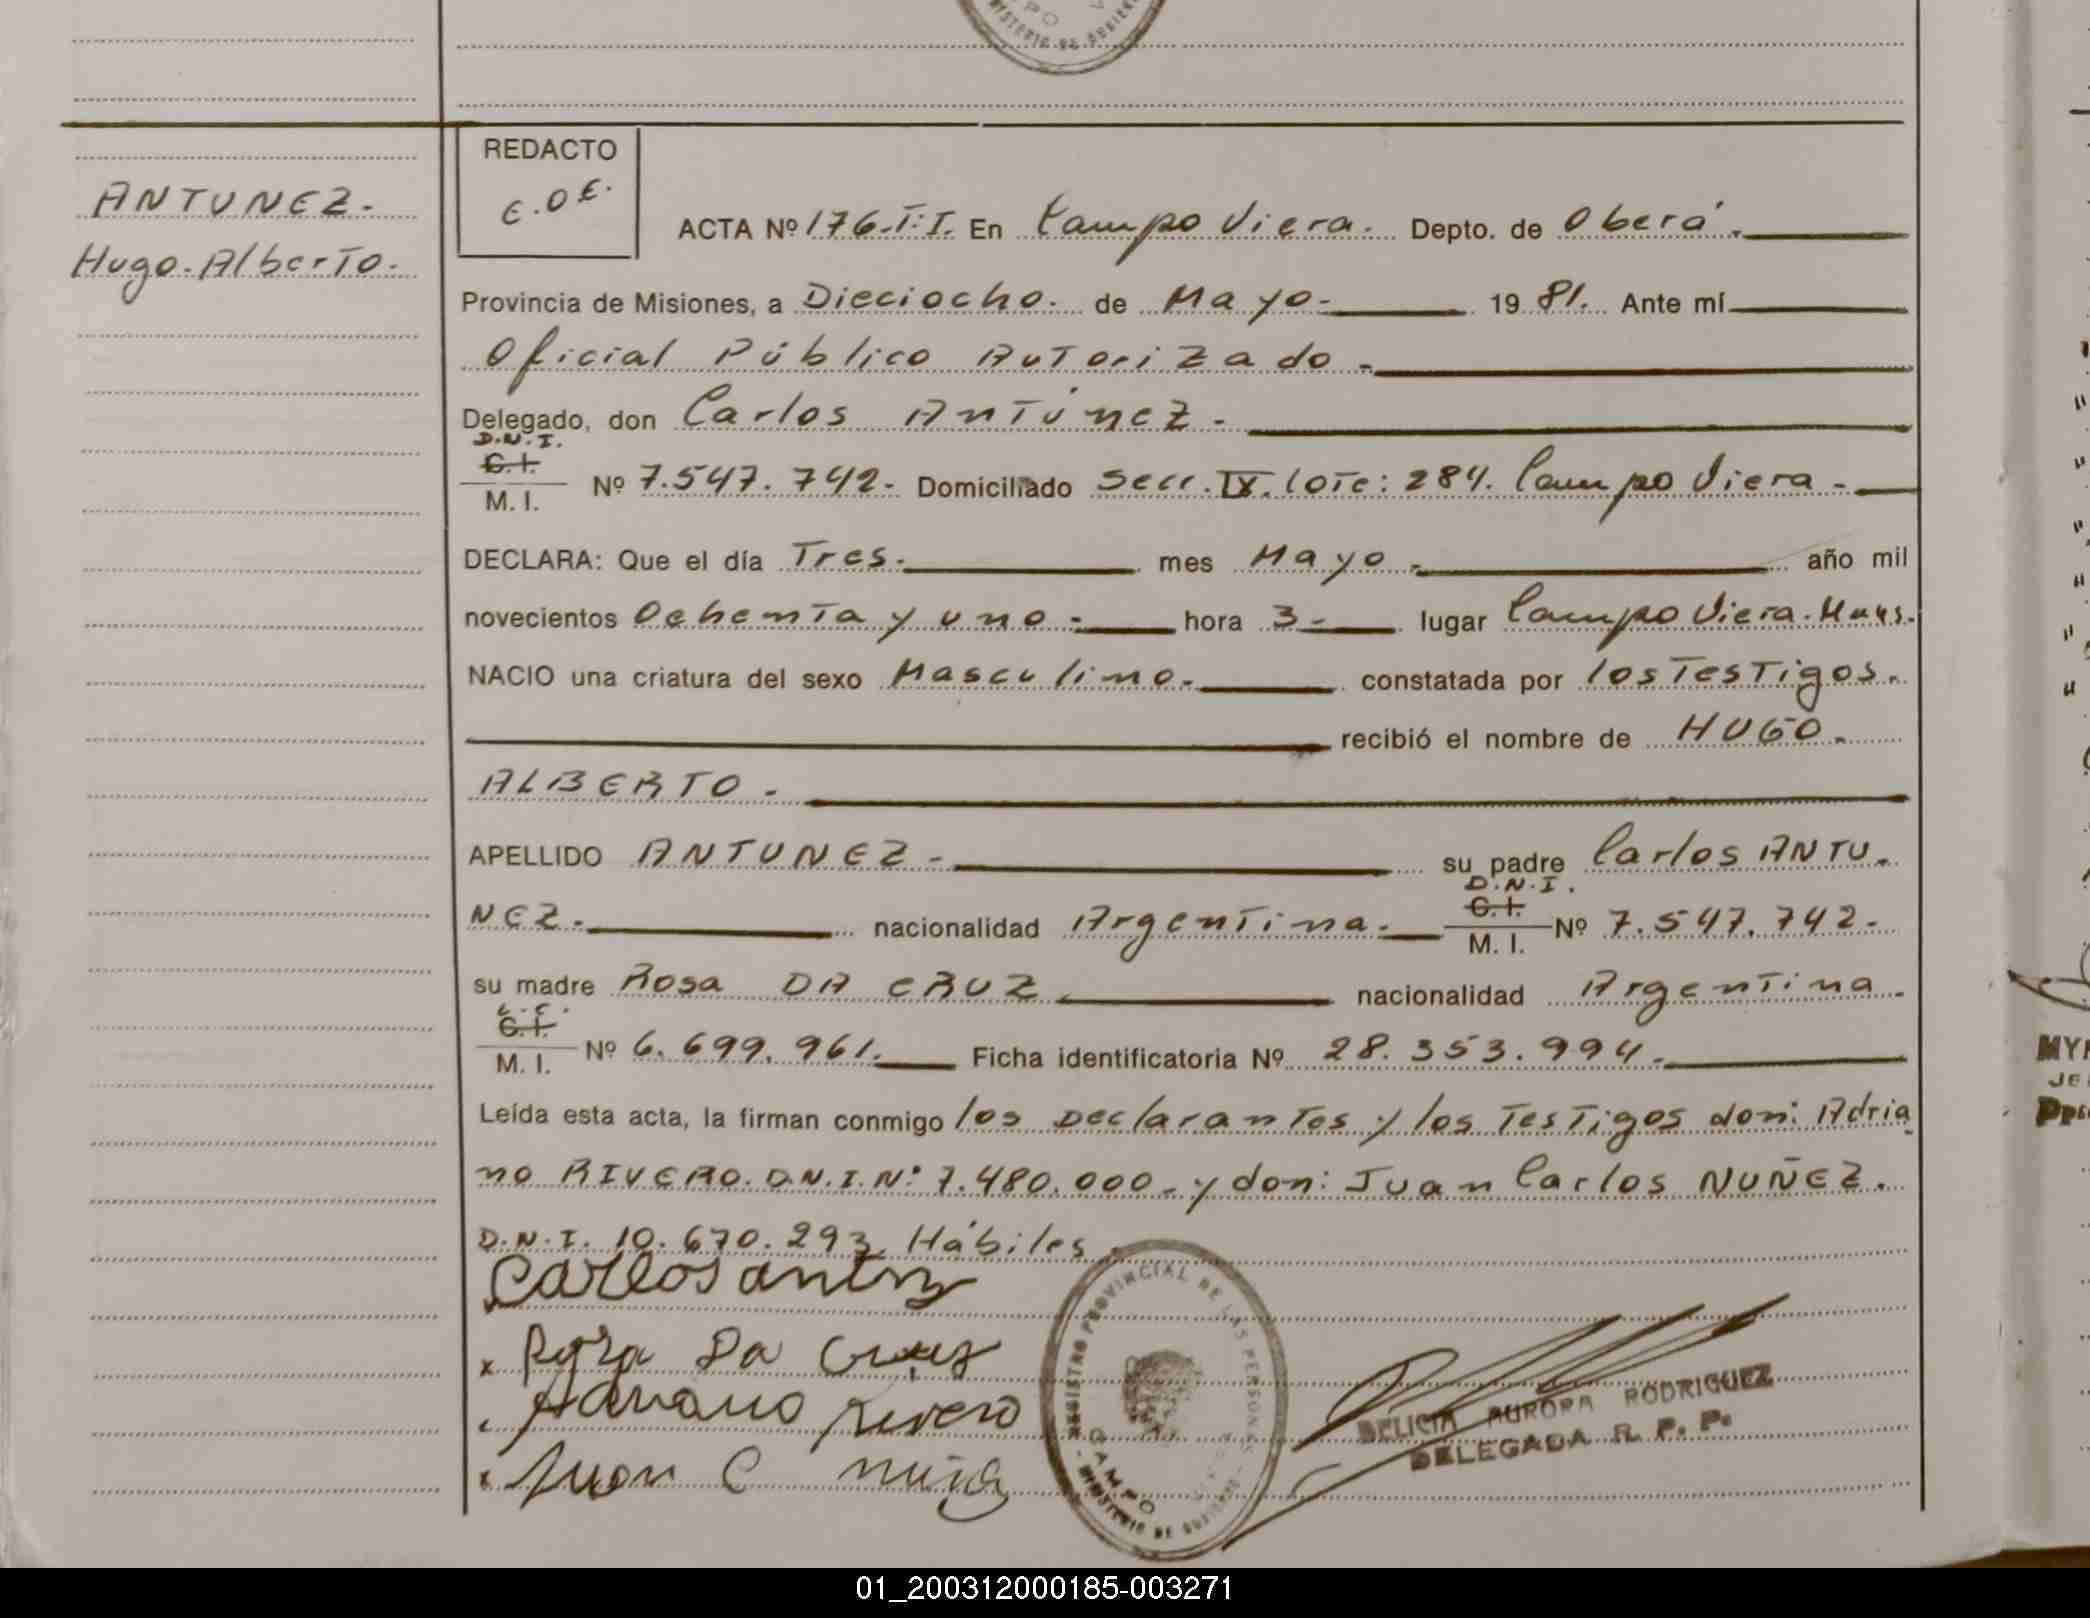 ANTUNEZ.
Hugo. Alberto.
REDACTO
E.O.E.
ACTA Nº 176-T:I. En Campo Viera. Depto. de Oberá.
Provincia de Misiones, a Dieciocho. de Mayo- 19 81. Ante mí
Oficial Público Autorizado-
Delegado, don Carlos Antúnez-
D.N.I.
C.I.
M. I. Nº 7.547.742- Domiciliado Secc. IX. lote: 284. Campo Viera-
DECLARA: Que el día Tres. mes Mayo. año mil
novecientos Ochenta y uno- hora 3- lugar Campo Viera.
NACIO una criatura del sexo Masculino- constatada por los Testigos.
recibió el nombre de HUGO.
ALBERTO.
APELLIDO ANTUNEZ- su padre Carlos ANTU-
NEZ. nacionalidad Argentina.
D.N.I.
C.I.
M. I. Nº 7.547.742-
su madre Rosa DA CRUZ nacionalidad Argentina.
L.C.
C.I.
M. I. Nº 6.699.961. Ficha identificatoria Nº 28.353.994.
Leída esta acta, la firman conmigo los Declarantes y los Testigos don: Adria
no RIVERO. D.N.I. Nº 7.480.000- y don: Juan Carlos NUÑEZ.
D.N.I. 10.670.293. Hábiles
Carlos
x Rosa Da Cruz
Adriano Rivero
x Juan C
REGISTRO PROVINCIAL DE LAS PERSONAS
CAMPO
MINISTERIO DE GOBIERNO
DELICIA AURORA RODRIGUEZ
DELEGADA R. P. P.
01_200312000185-003271